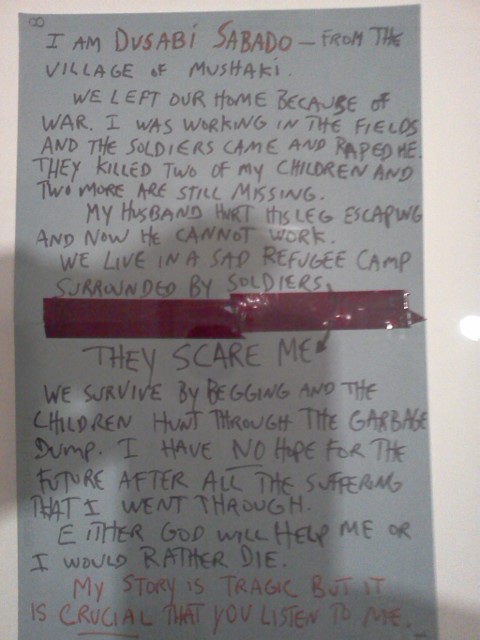 8
I AM DUSABI SABADO – FROM THE
VILLAGE OF MUSHAKI.
WE LEFT OUR HOME BECAUSE OF
WAR. I WAS WORKING IN THE FIELDS
AND THE SOLDIERS CAME AND RAPED ME.
THEY KILLED TWO OF MY CHILDREN AND
TWO MORE ARE STILL MISSING.
MY HUSBAND HURT HIS LEG ESCAPING
AND NOW HE CANNOT WORK.
WE LIVE IN A SAD REFUGEE CAMP
SURROUNDED BY SOLDIERS.
THEY SCARE ME
WE SURVIVE BY BEGGING AND THE
CHILDREN HUNT THROUGH THE GARBAGE
DUMP. I HAVE NO HOPE FOR THE
FUTURE AFTER ALL THE SUFFERING
THAT I WENT THROUGH.
EITHER GOD WILL HELP ME OR
I WOULD RATHER DIE.
MY STORY IS TRAGIC BUT IT
IS CRUCIAL THAT YOU LISTEN TO ME.